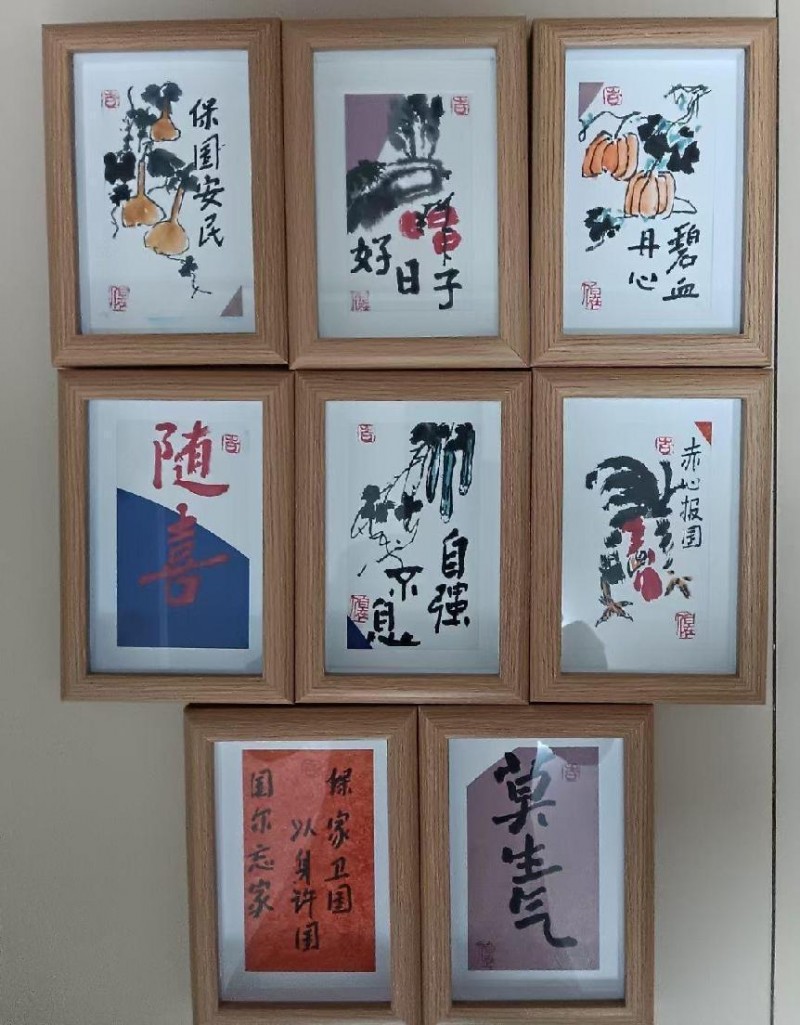 保国安民
好日子
碧血
丹心
随喜
自强
不息
赤心报国
保家卫国
以身许国
国尔忘家
莫生气
吉
吉
吉
吉
吉
吉